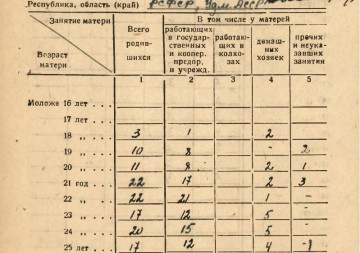 Республика, область (край) РСФСР, Удм. АССР
Занятие матери
Возраст матери
Всего родившихся
В том числе у матерей
работающих в государственных и коопер. предпр. и учрежд.
работающих в колхозах
домашних хозяек
прочих и неуказавших занятия
1 2 3 4 5
Моложе 16 лет . . .
17 лет . . .
18 „ . . . 3 1 2
19 „ . . . 10 8 - 2
20 „ . . . 11 8 2 1
21 год . . . 22 17 2 3
22 „ . . . 22 21 1 -
23 „ . . . 17 12 5
24 „ . . . 20 15 5 -
25 лет . . . 17 12 4